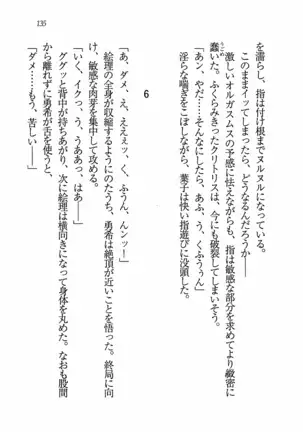 135
を濡らし、指は付け根までヌルヌルになっている。
このままイッてしまったら、どうなるんだろうか――
激しいオルガスムスの予感に怯えながらも、指は敏感な部分を求めてより緻密に
蠢いた。ふくらみきったクリトリスは、今にも破裂してしまいそう。
「あン、やだ――そんなにしたら、あふ、う、くふうぅん」
淫らな喘ぎをこぼしながら、葉子は快い指遊びに没頭した。
6
「あ、ダメ、え、ええぇッ、く、ふうん、んンッ――！」
絵理の全身が収縮するようにのたうち、勇希は絶頂が近いことを悟った。終局に向
け、敏感な肉芽を集中して攻める。
「いく、イクっ、う、うああっ、はあ――」
ググッと背中が持ちあがり、次に絵理は横向きになって身体を丸めた。なおも股間
から離れずに勇希が舌を使うと、
「ダメ……もう、苦しい――」